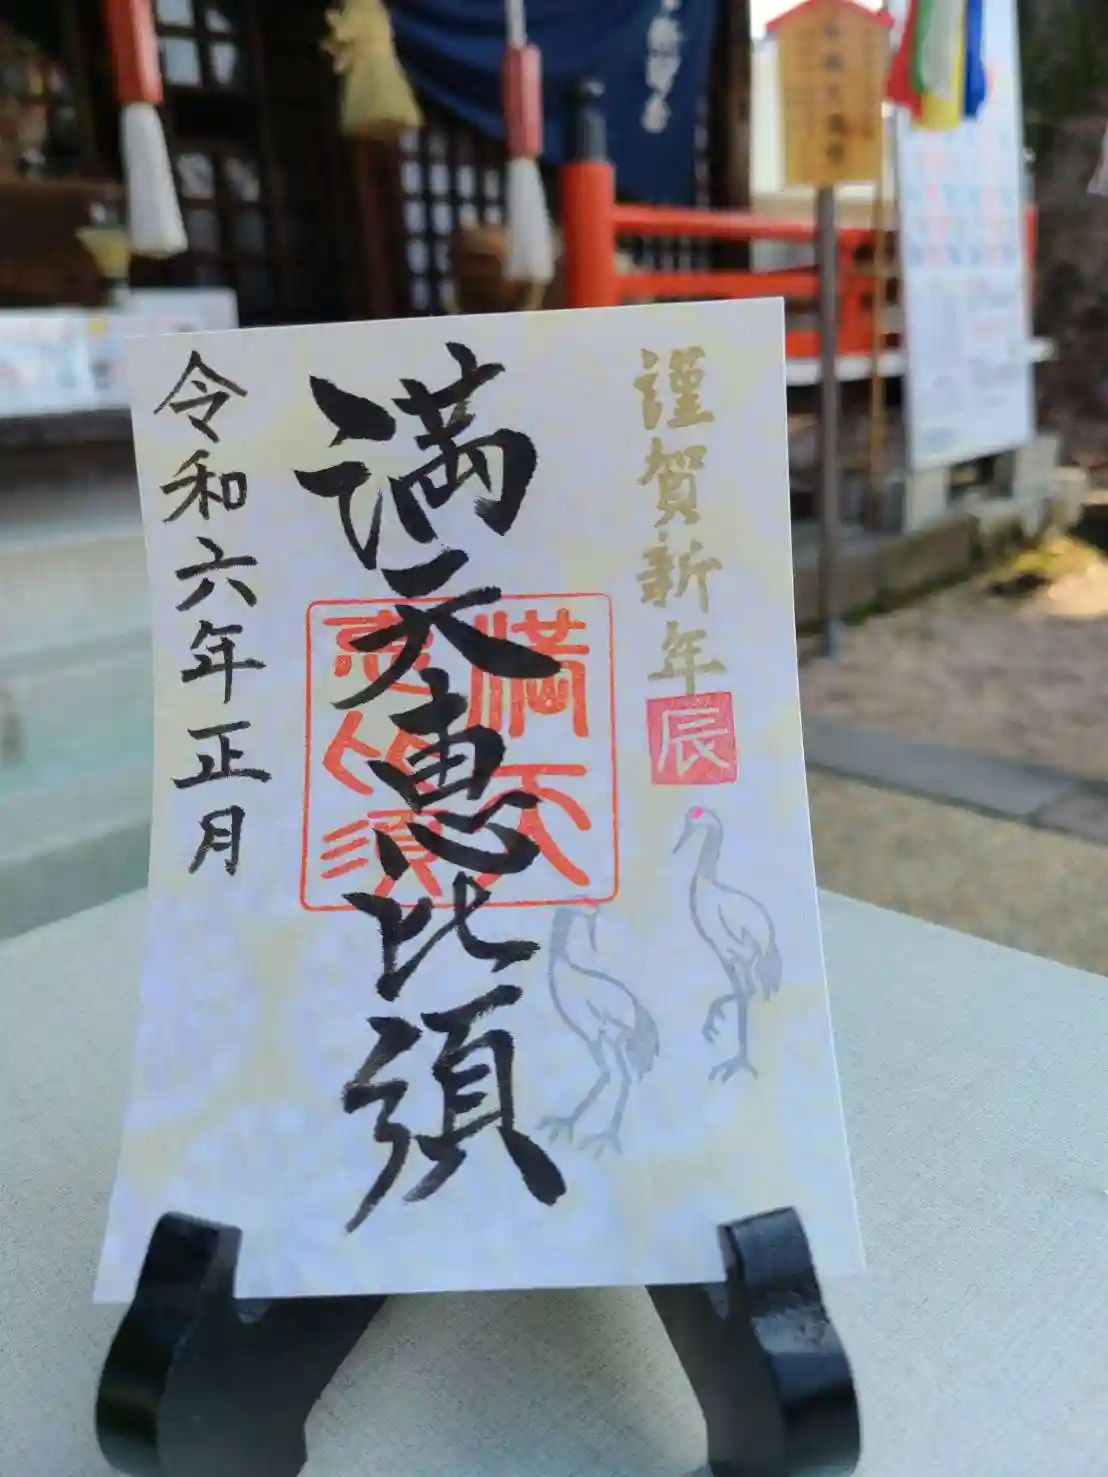 謹賀新年
辰
満天恵比須
満天
恵比須
令和六年正月